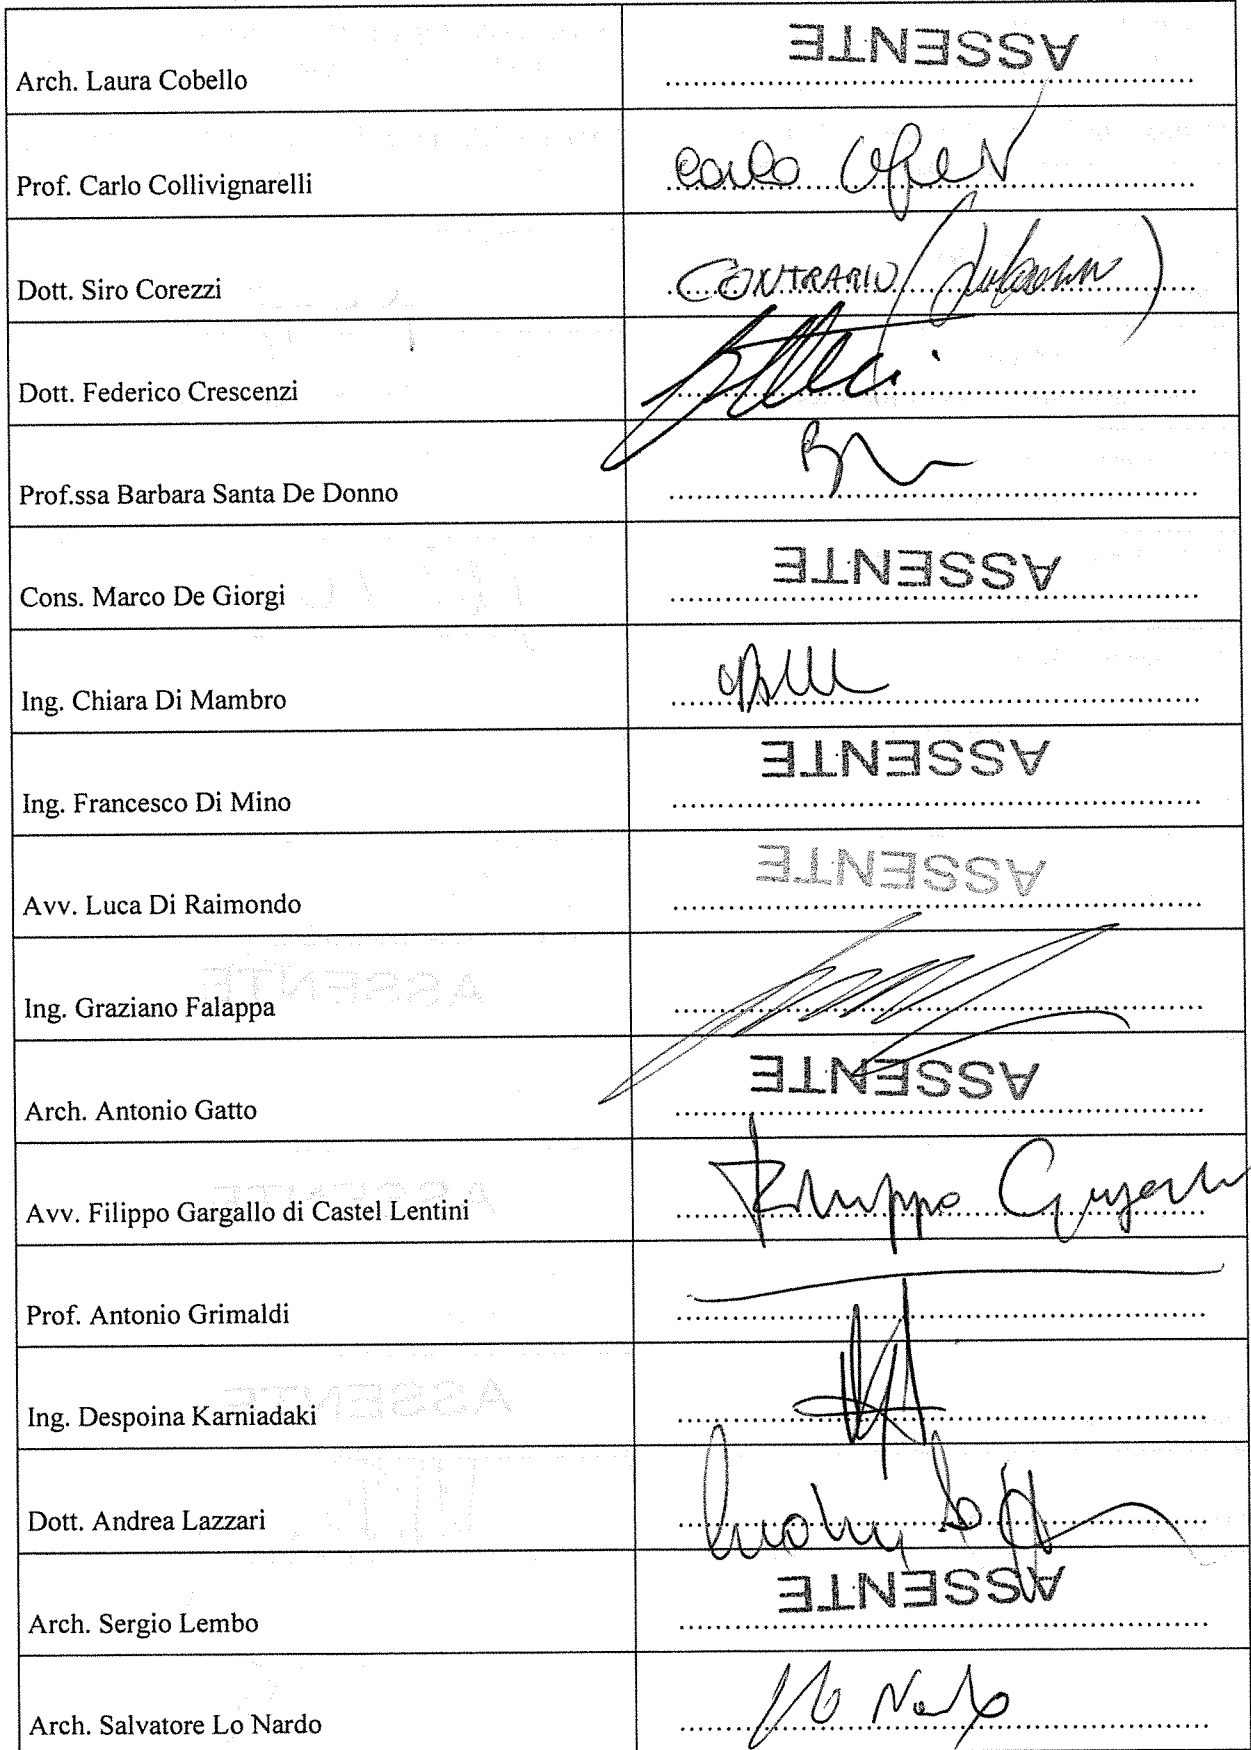 Arch. Laura Cobello
ASSENTE
Prof. Carlo Collivignarelli
Carlo
Dott. Siro Corezzi
CONTRARIO
Dott. Federico Crescenzi
Prof.ssa Barbara Santa De Donno
Cons. Marco De Giorgi
ASSENTE
Ing. Chiara Di Mambro
Ing. Francesco Di Mino
ASSENTE
Avv. Luca Di Raimondo
ASSENTE
Ing. Graziano Falappa
ASSENTE
Arch. Antonio Gatto
ASSENTE
Avv. Filippo Gargallo di Castel Lentini
ASSENTE
Filippo
Prof. Antonio Grimaldi
Ing. Despoina Karniadaki
ASSENTE
Dott. Andrea Lazzari
Arch. Sergio Lembo
ASSENTE
Arch. Salvatore Lo Nardo
Lo Nardo